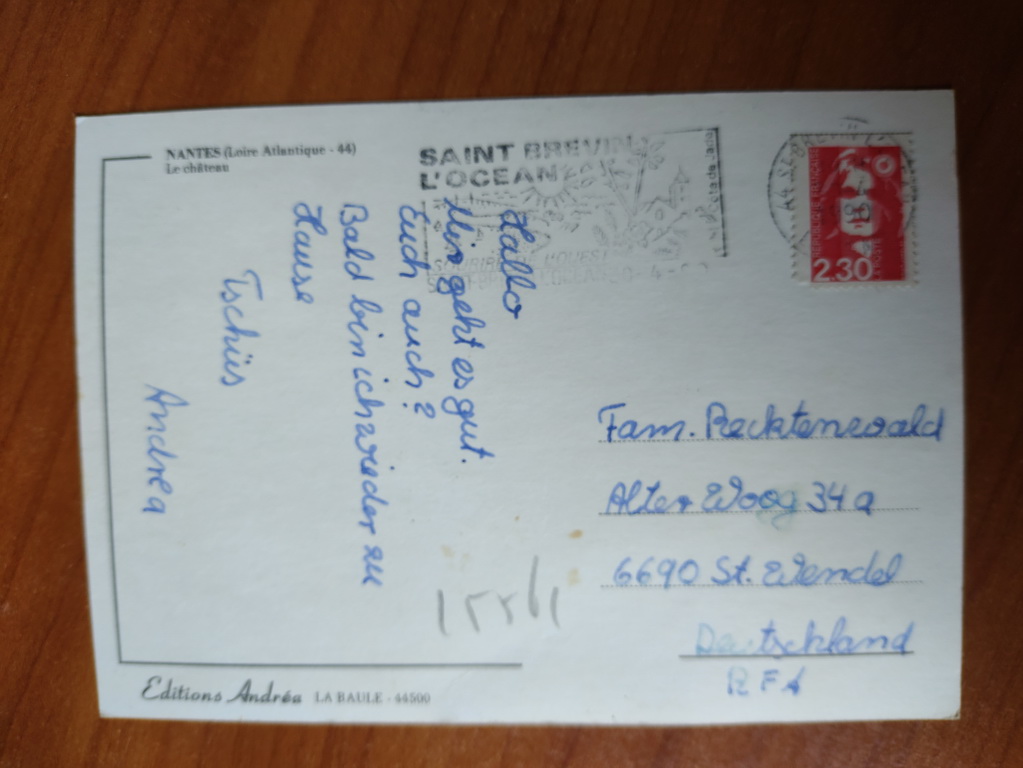 NANTES (Loire Atlantique - 44)
Le château
SAINT BREVIN
L'OCEAN
SOURIRE DE L'OUEST
2.30
Hallo
Mir geht es gut.
Euch auch?
Bald bin ich wieder zu
Hause
Tschüs
Andrea
Fam. Recktenwald
Alter Woog 34a
6690 St. Wendel
Deutschland
RFA
Editions Andréa LA BAULE - 44500